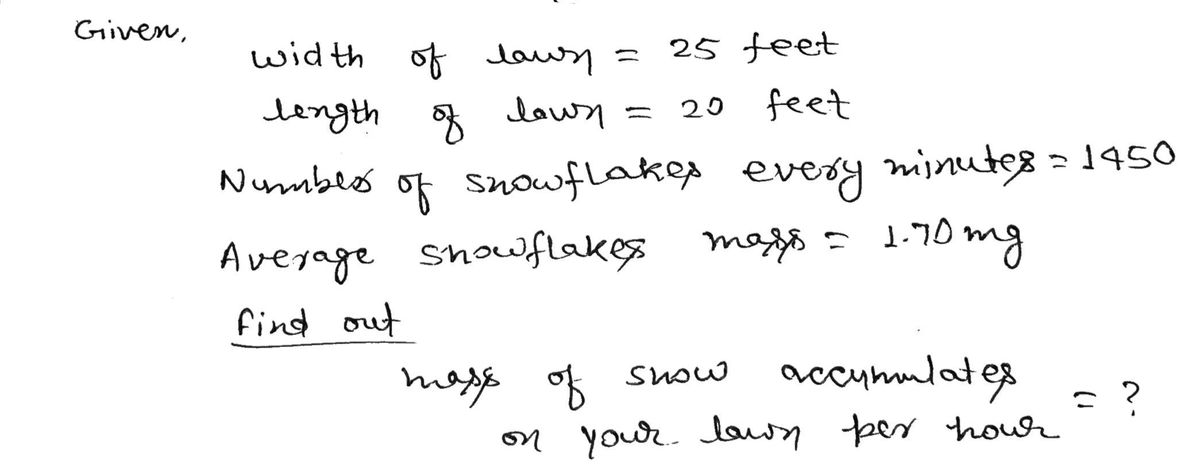 Given,
width of lawn = 25 feet
length of lawn = 20 feet
Number of snowflakes every minutes = 1450
Average snowflakes mass = 1.70 mg
find out
mass of snow accumulates
on your lawn per hour = ?